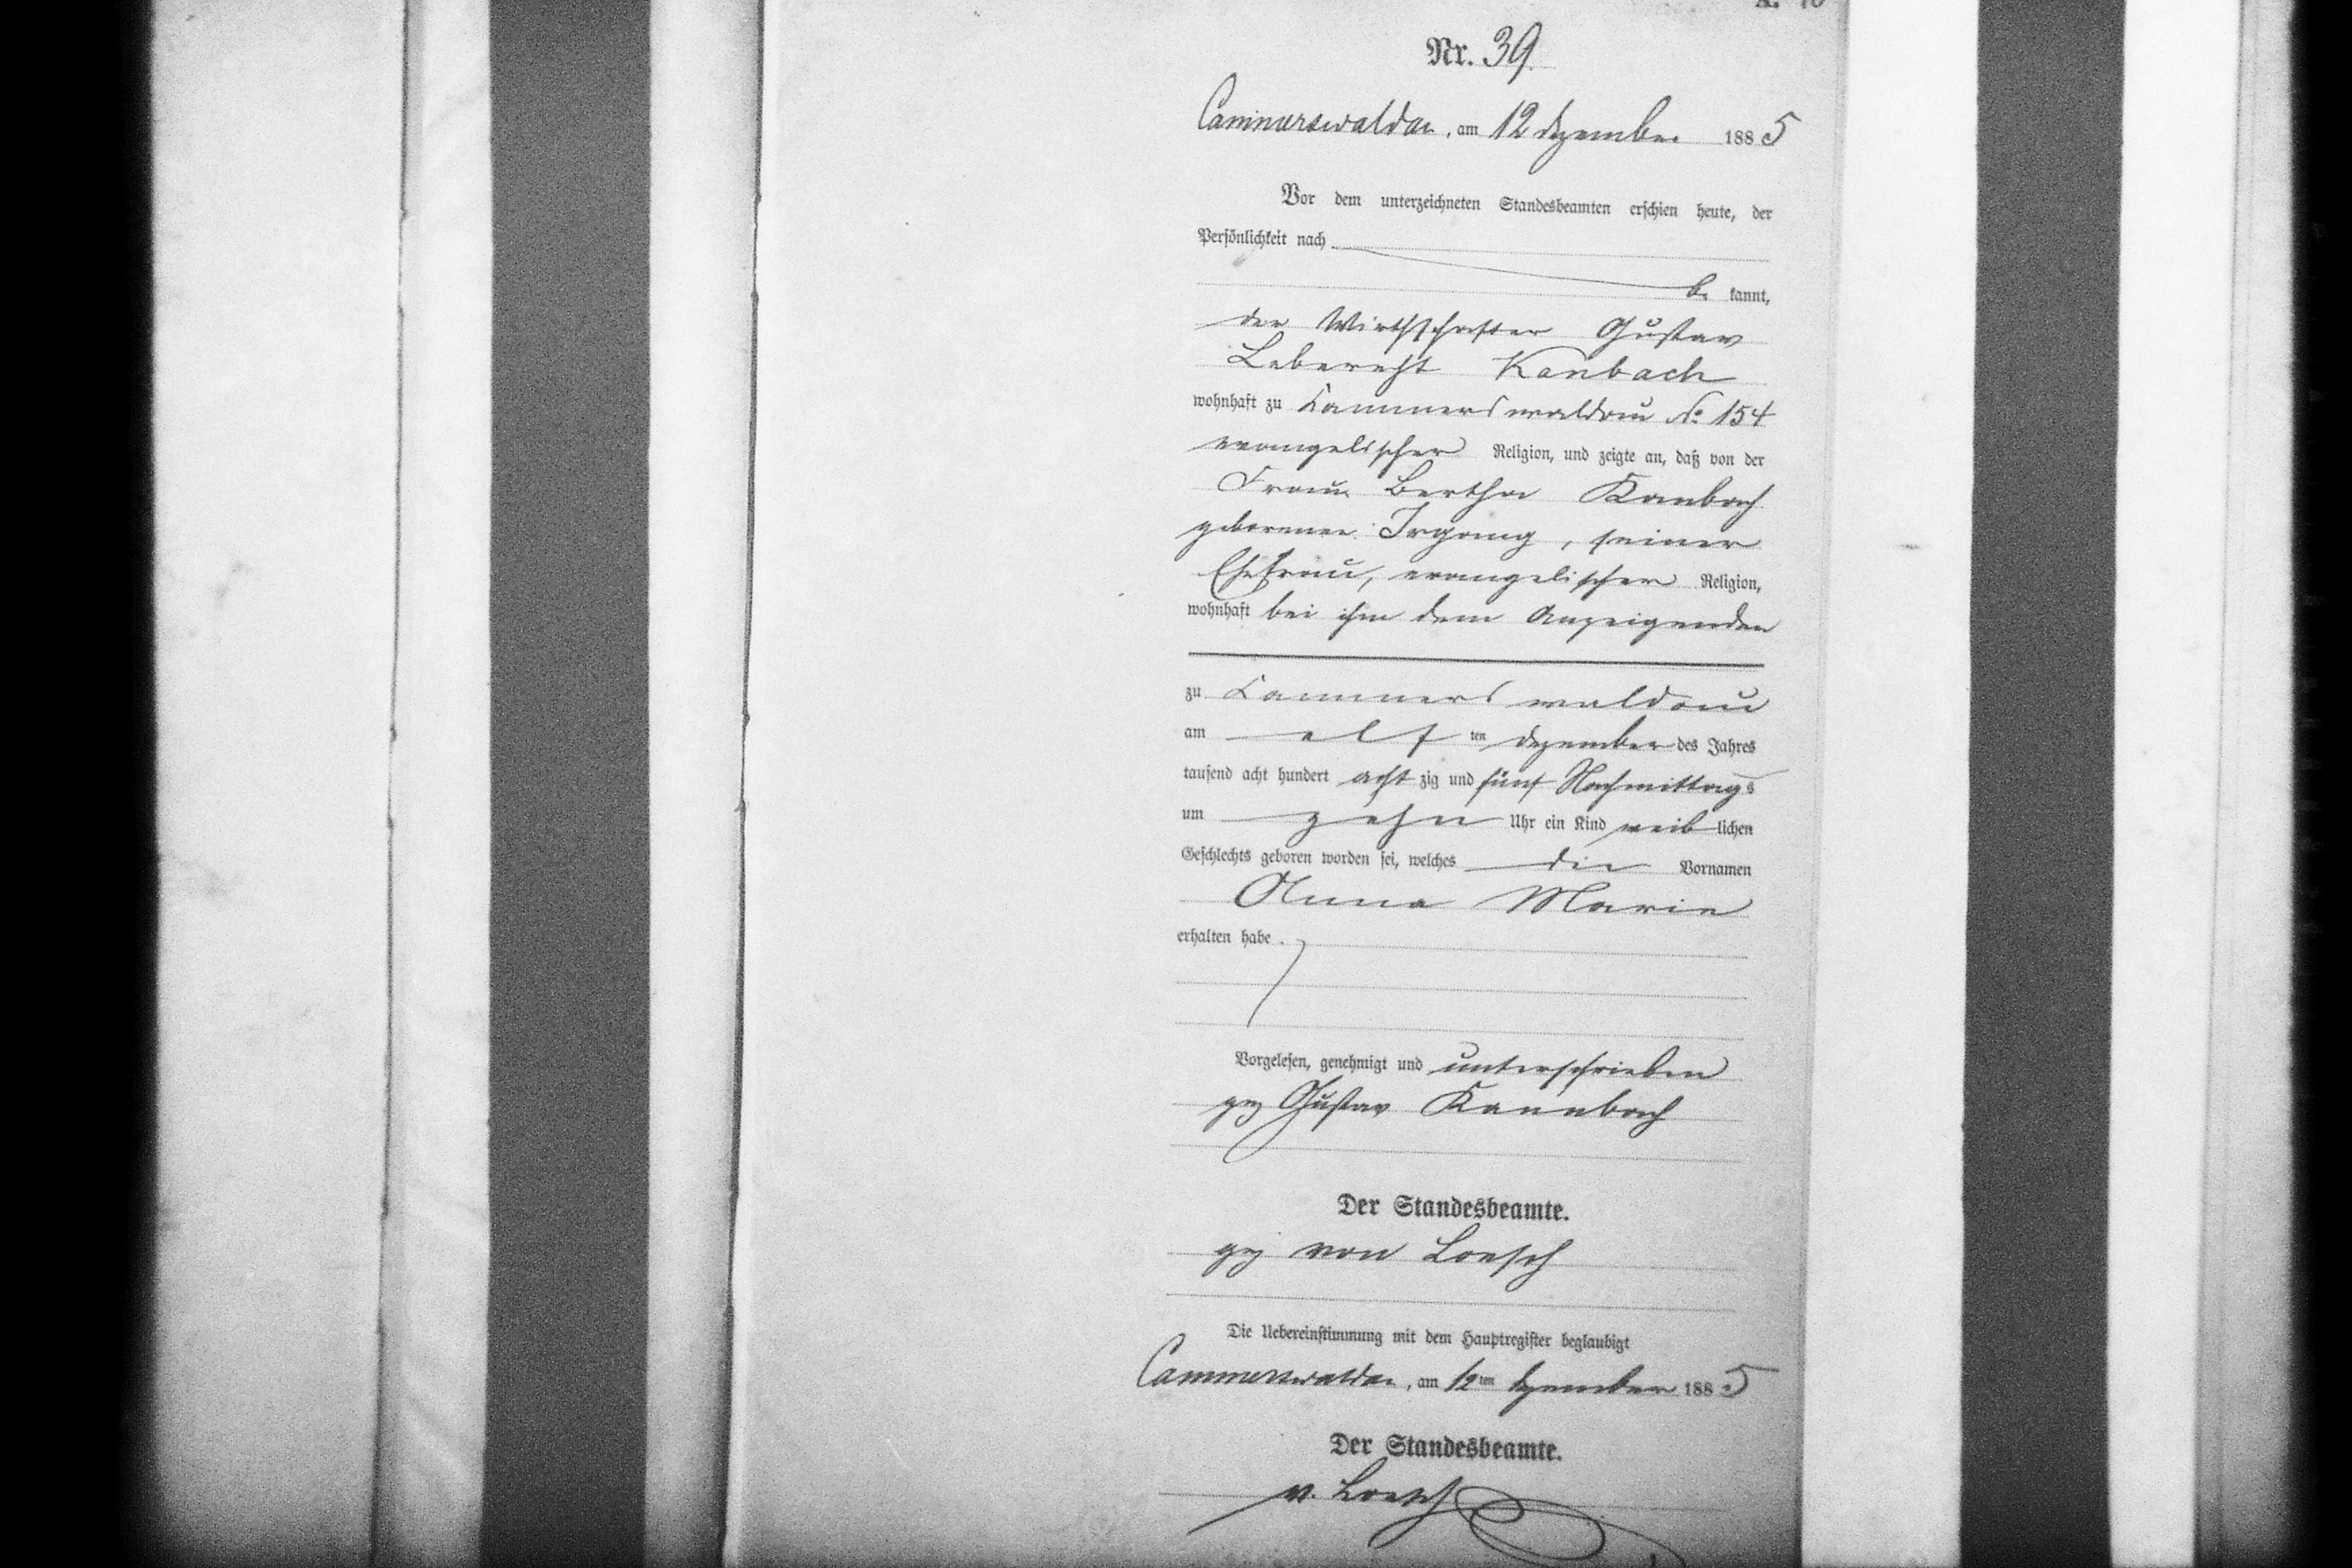 Nr. 39.
Cammerswaldau, am 12 Dezember 1885
Vor dem unterzeichneten Standesbeamten erschien heute, der
Persönlichkeit nach
be kannt,
der Wirthschafter Gustav
Leberecht Kanbach
wohnhaft zu Cammerswaldau No 154
evangelischer Religion, und zeigte an, daß von der
Frau Bertha Kanbach
geborenen Irgang, seiner
Ehefrau, evangelischer Religion,
wohnhaft bei ihm dem Anzeigenden
zu Cammerswaldau
am elf ten Dezember des Jahres
tausend acht hundert acht zig und fünf Nachmittags
um zehn Uhr ein Kind weib lichen
Geschlechts geboren worden sei, welches die Vornamen
Anna Marie
erhalten habe.
Vorgelesen, genehmigt und unterschrieben
gez Gustav Kannbach
Der Standesbeamte.
gez von Loesch
Die Uebereinstimmung mit dem Hauptregister beglaubigt
Cammerswaldau, am 12ten Dezember 1885
Der Standesbeamte.
v. Loesch